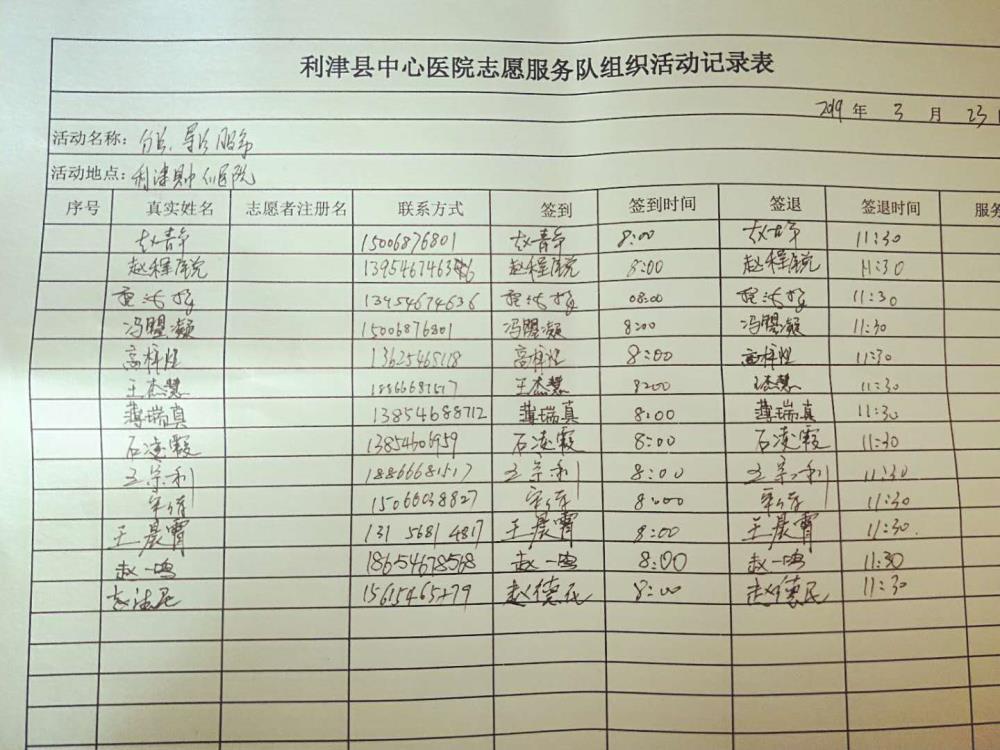 利津县中心医院志愿服务队组织活动记录表
2019 年 3 月 23
活动名称: 分诊、导诊服务
活动地点: 利津县中心医院
序号 真实姓名 志愿者注册名 联系方式 签到 签到时间 签退 签退时间 服务
赵青华 15006876801 赵青华 8:00 11:30
赵程 赵程 8:00 赵程 11:30
13954674636 08:00 11:30
冯盟凝 15006876801 冯盟凝 8:00 冯盟凝 11:30
高梓煜 13625465118 高梓煜 8:00 高梓煜 11:30
王杰慧 18866681517 王杰慧 8:00 王杰慧 11:30
薄瑞真 13854688712 薄瑞真 8:00 薄瑞真 11:30
石凌霞 石凌霞 8:00 石凌霞 11:30
王宗利 18866681517 王宗利 8:00 王宗利 11:30
15066038827 8:00 11:30
王晨霄 131 5681 4817 王晨霄 8:00 王晨霄 11:30
赵一鸣 18654678568 赵一鸣 8:00 赵一鸣 11:30
赵德民 赵德民 8:00 赵德民 11:30